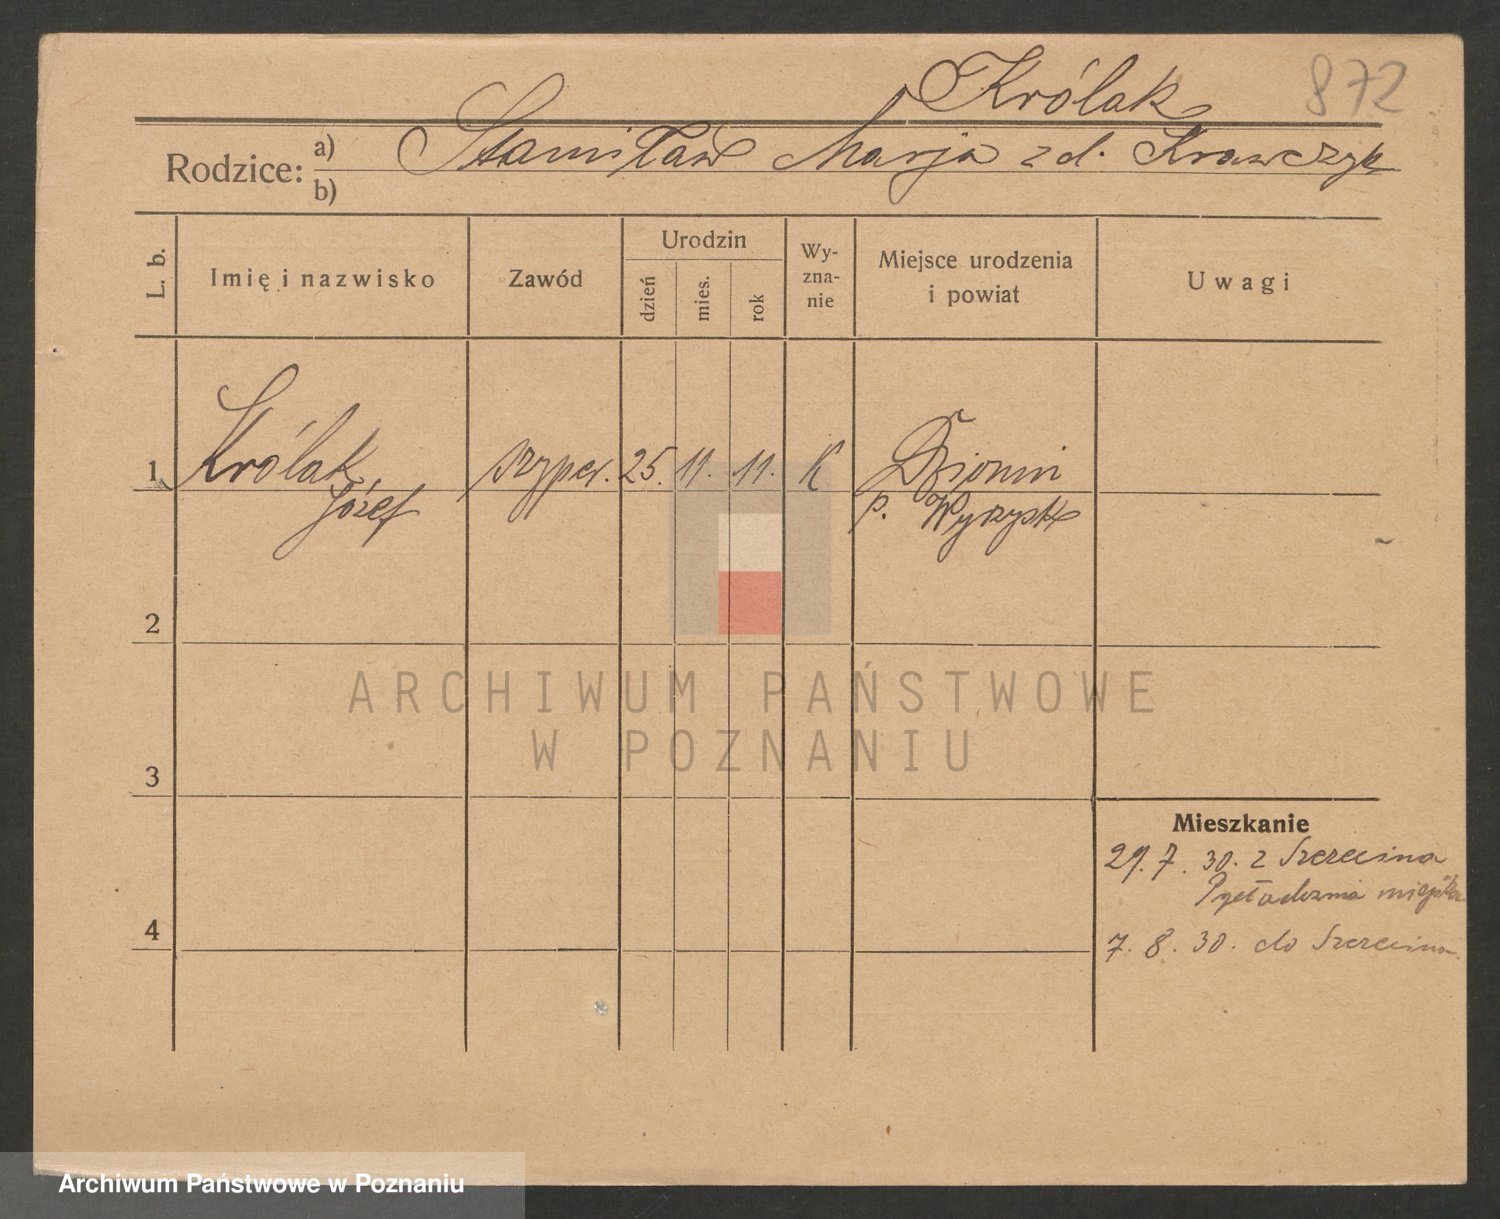 Królak 872
Rodzice: a) Stanisław Marja z d. Krawczyk
b)
L. b.
Imię i nazwisko
Zawód
Urodzin
dzień
mies.
rok
Wy-
zna-
nie
Miejsce urodzenia
i powiat
Uwagi
1 Królak szyper. 25. 11. 11. K
Józef p. Wyrzysk
2
ARCHIWUM PAŃSTWOWE
W POZNANIU
3
Mieszkanie
29. 7. 30. z Szczecina
miejska
4
7. 8. 30. do Szczecina
Archiwum Państwowe w Poznaniu